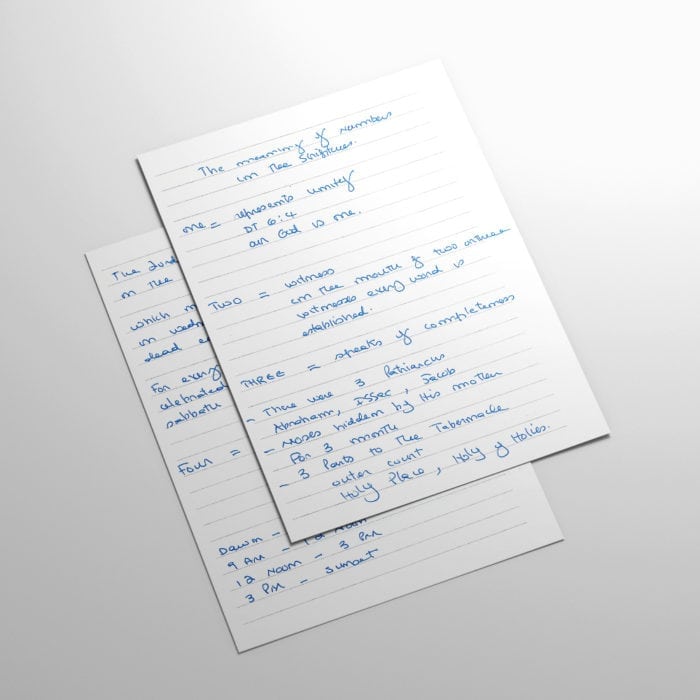 The meaning of Numbers
in The Scriptures.
one = represents unity
DT 6:4
our God is one.
TWO = witness
in The mouth of two or three
witnesses every word is
established.
THREE = speaks of completeness
- There were 3 Patriarchs
Abraham, ISSac, Jacob
- Moses hidden by His mother
For 3 month
- 3 Parts to The Tabernacle
outer court
Holy Place, Holy of Holies.
The
on The
which
in
dead
For every
celebrated
sabbath
Four =
Dawn -
9 AM - 12 Noon
12 Noon - 3 PM
3 PM - Sunset